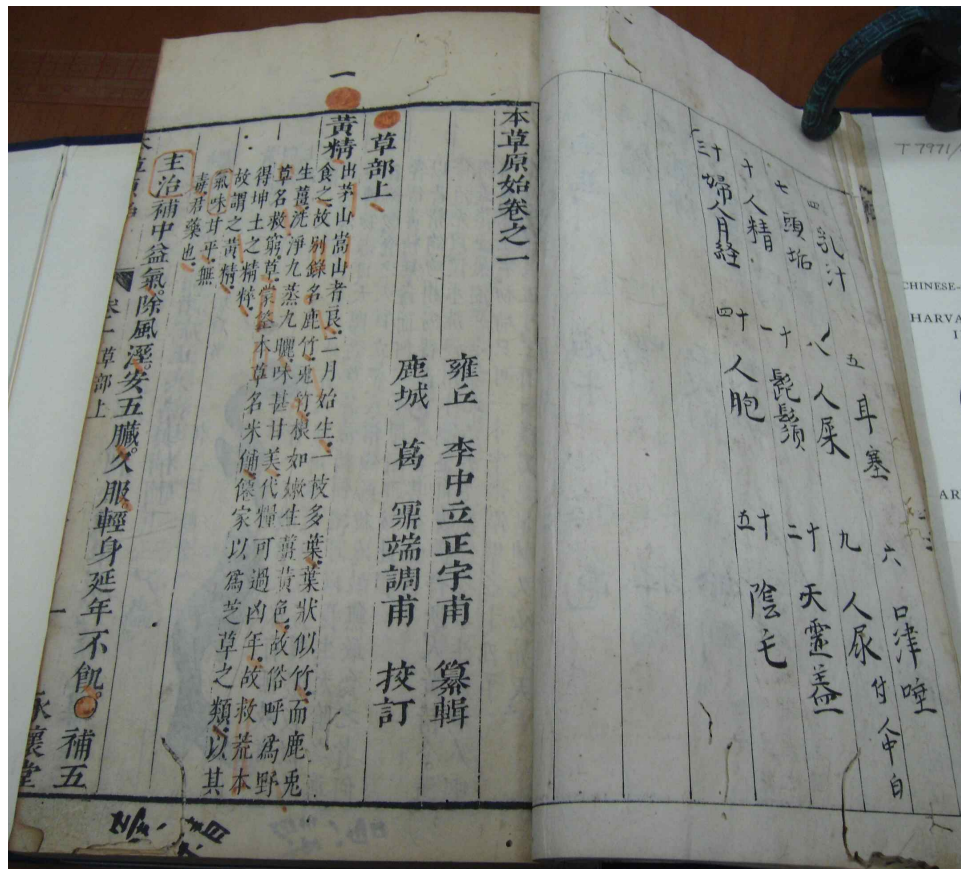 T 7971/
CHINESE-
HARVA
AR
四 乳汁 五 耳塞 六 口津唾
七 頭垢 八 人屎 九 人尿 付人中白
十 人精 十一 髭鬚 十二 天靈蓋
十三 婦人月経 十四 人胞 十五 陰毛
本草原始卷之一
雍丘 李中立正宇甫 纂輯
鹿城 葛 鼐端調甫 挍訂
草部上
一
黃精
出茅山嵩山者良二月始生一枝多葉葉狀似竹而鹿兎
食之故别錄名鹿竹兎竹根如嫩生薑黃色故俗呼爲野
生薑洗淨九蒸九曬味甚甘美代糧可過凶年故救荒本
草名救窮草蒙筌本草名米餔僊家以爲芝草之類以其
得坤土之精粹
故謂之黃精
氣味甘平無
毒君藥也
主治補中益氣除風溼安五臟久服輕身延年不飢 補五
卷一 草部上 一